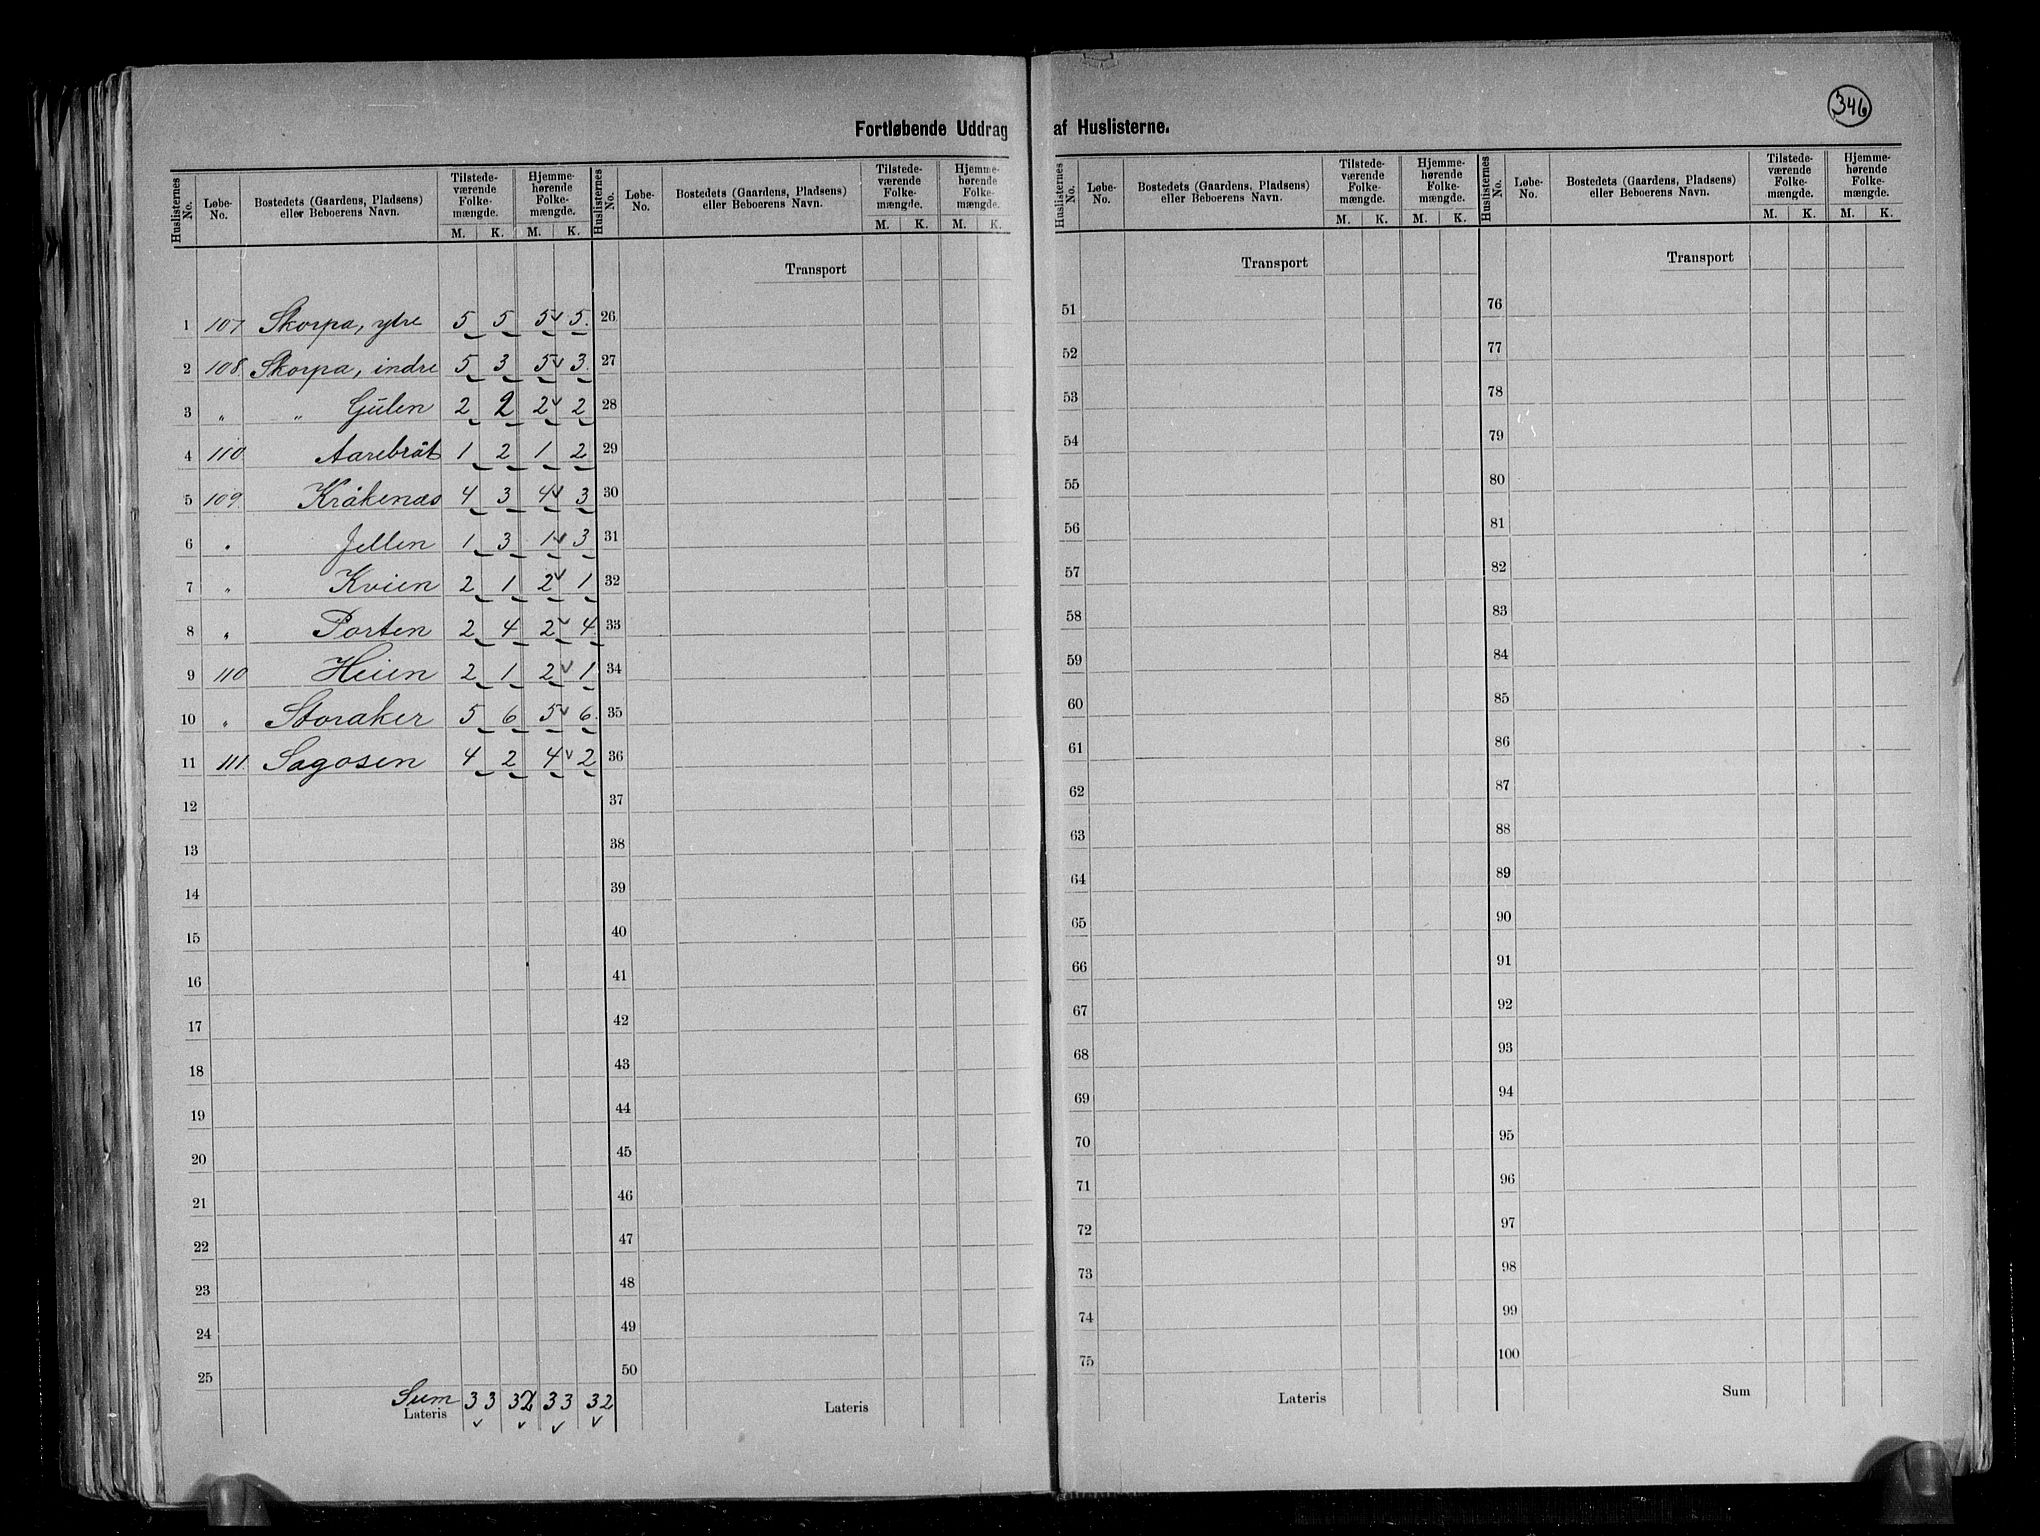 346
Fortløbende Uddrag af Huslisterne.
Huslisternes No. Løbe-No. Bostedets (Gaardens, Pladsens) eller Beboerens Navn. Tilstedeværende Folkemængde. M. K. Hjemmehørende Folkemængde. M. K.
Huslisternes No. Løbe-No. Bostedets (Gaardens, Pladsens) eller Beboerens Navn. Tilstedeværende Folkemængde. M. K. Hjemmehørende Folkemængde. M. K.
Huslisternes No. Løbe-No. Bostedets (Gaardens, Pladsens) eller Beboerens Navn. Tilstedeværende Folkemængde. M. K. Hjemmehørende Folkemængde. M. K.
Huslisternes No. Løbe-No. Bostedets (Gaardens, Pladsens) eller Beboerens Navn. Tilstedeværende Folkemængde. M. K. Hjemmehørende Folkemængde. M. K.
1 107 Skorpa, ytre 5 5 5 5.
2 108. Skorpa, indre 5 3 5 3.
3 " " Gulen 2 2 2 2
4 110 Aarebrôt 1 2 1 2
5 109. Kråkenæs 4 3 4 3
6 " Jellen 1 3 1 3
7 " Kvien 2 1 2 1
8 " Porten 2 4 2 4
9 110 Heien 2 1 2 1
10 " Storaker 5 6 5 6.
11 111. Sagosen 4 2 4 2
12
13
14
15
16
17
18
19
20
21
22
23
24
25
Sum 33 32 33 32
Lateris
Transport
26
27
28
29
30
31
32
33
34
35
36
37
38
39
40
41
42
43
44
45
46
47
48
49
50
Lateris
Transport
51
52
53
54
55
56
57
58
59
60
61
62
63
64
65
66
67
68
69
70
71
72
73
74
75
Lateris
Transport
76
77
78
79
80
81
82
83
84
85
86
87
88
89
90
91
92
93
94
95
96
97
98
99
100
Sum